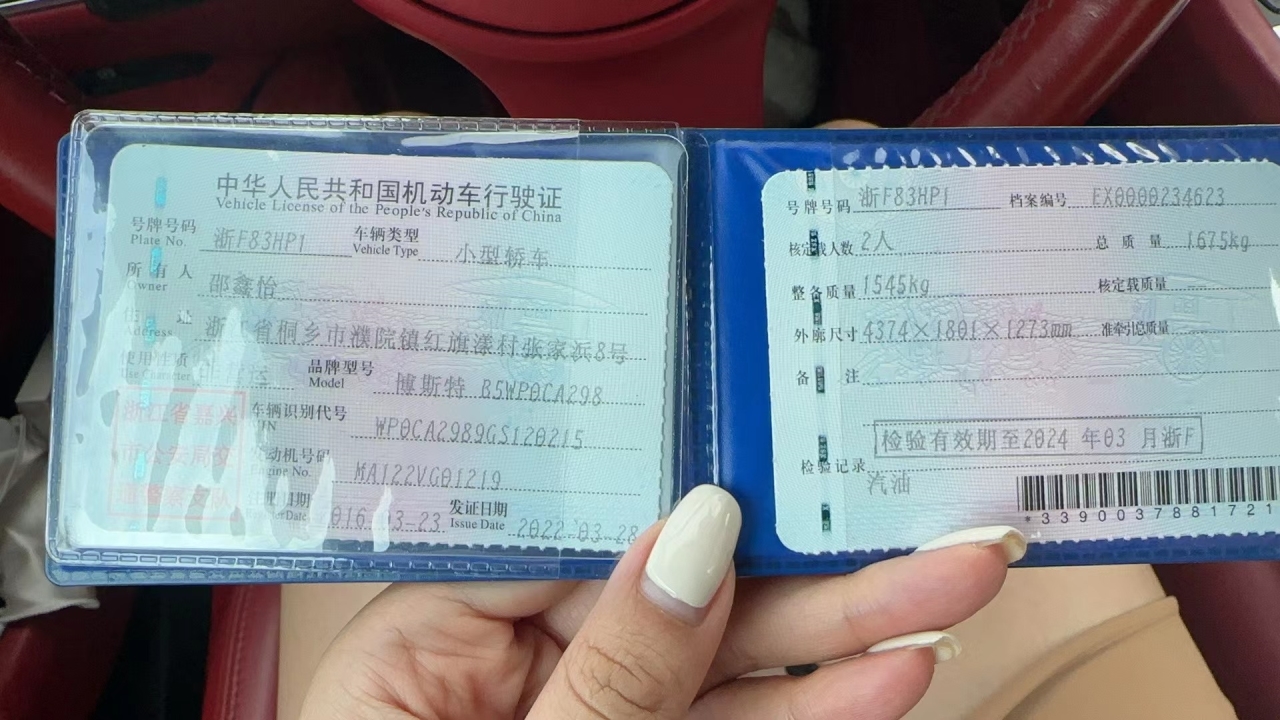 中华人民共和国机动车行驶证
Vehicle License of the People's Republic of China
号牌号码 浙F83HP1 车辆类型 小型轿车
Plate No. Vehicle Type
所有人 邵鑫怡
Owner
住 址 浙江省桐乡市濮院镇红旗漾村张家浜8号
Address
使用性质 品牌型号 博斯特 B5WP0CA298
Use Character Model
浙江省嘉兴
市公安局交
通警察支队
车辆识别代号 WP0CA2989GS120215
VIN
发动机号码 MA122VG01219
Engine No.
注册日期 2016-03-23 发证日期 2022-03-28
Issue Date
号牌号码 浙F83HP1 档案编号 EX0000234623
核定载人数 2人 总质量 1675kg
整备质量 1545kg 核定载质量 --
外廓尺寸 4374×1801×1273mm 准牵引总质量 --
备 注
检验有效期至2024 年03 月浙F
检验记录
汽油
*3390037881721